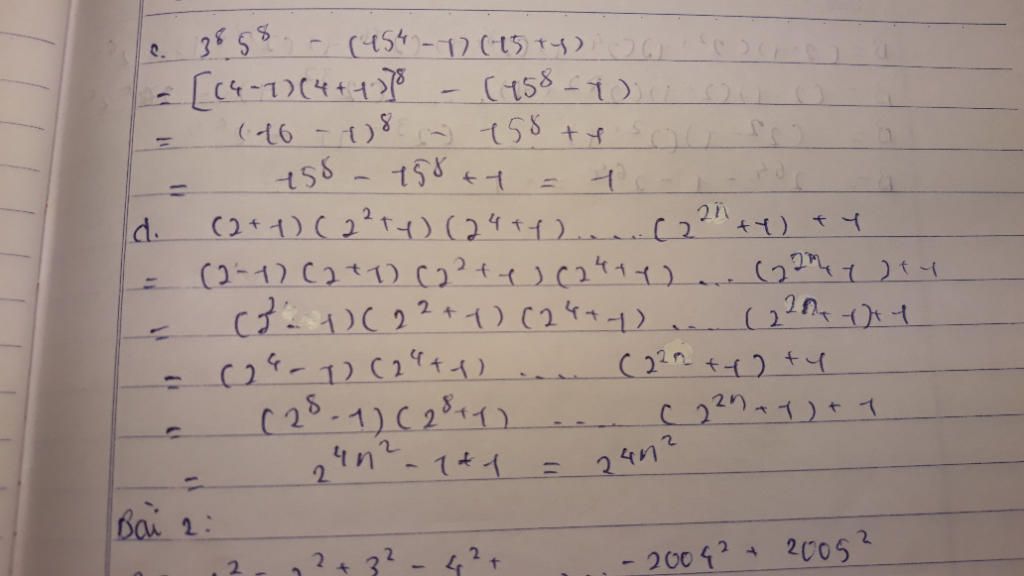 c. 3⁸.5⁸ - (15⁴-1)(15+1)
= [(4-1)(4+1)]⁸ - (15⁸-1)
= (16-1)⁸ - 15⁸+1
= 15⁸ - 15⁸ + 1 = 1
d. (2+1)(2²+1)(2⁴+1)....(2²ⁿ+1) + 1
= (2-1)(2+1)(2²+1)(2⁴+1)...(2²ⁿ+1)+1
= (2²-1)(2²+1)(2⁴+1)...(2²ⁿ+1)+1
= (2⁴-1)(2⁴+1)....(2²ⁿ+1)+1
= (2⁸-1)(2⁸+1)....(2²ⁿ+1)+1
= 2^4n² - 1+1 = 2^4n²
Bài 2:
² + 3² - 4² + .... - 2004² + 2005²